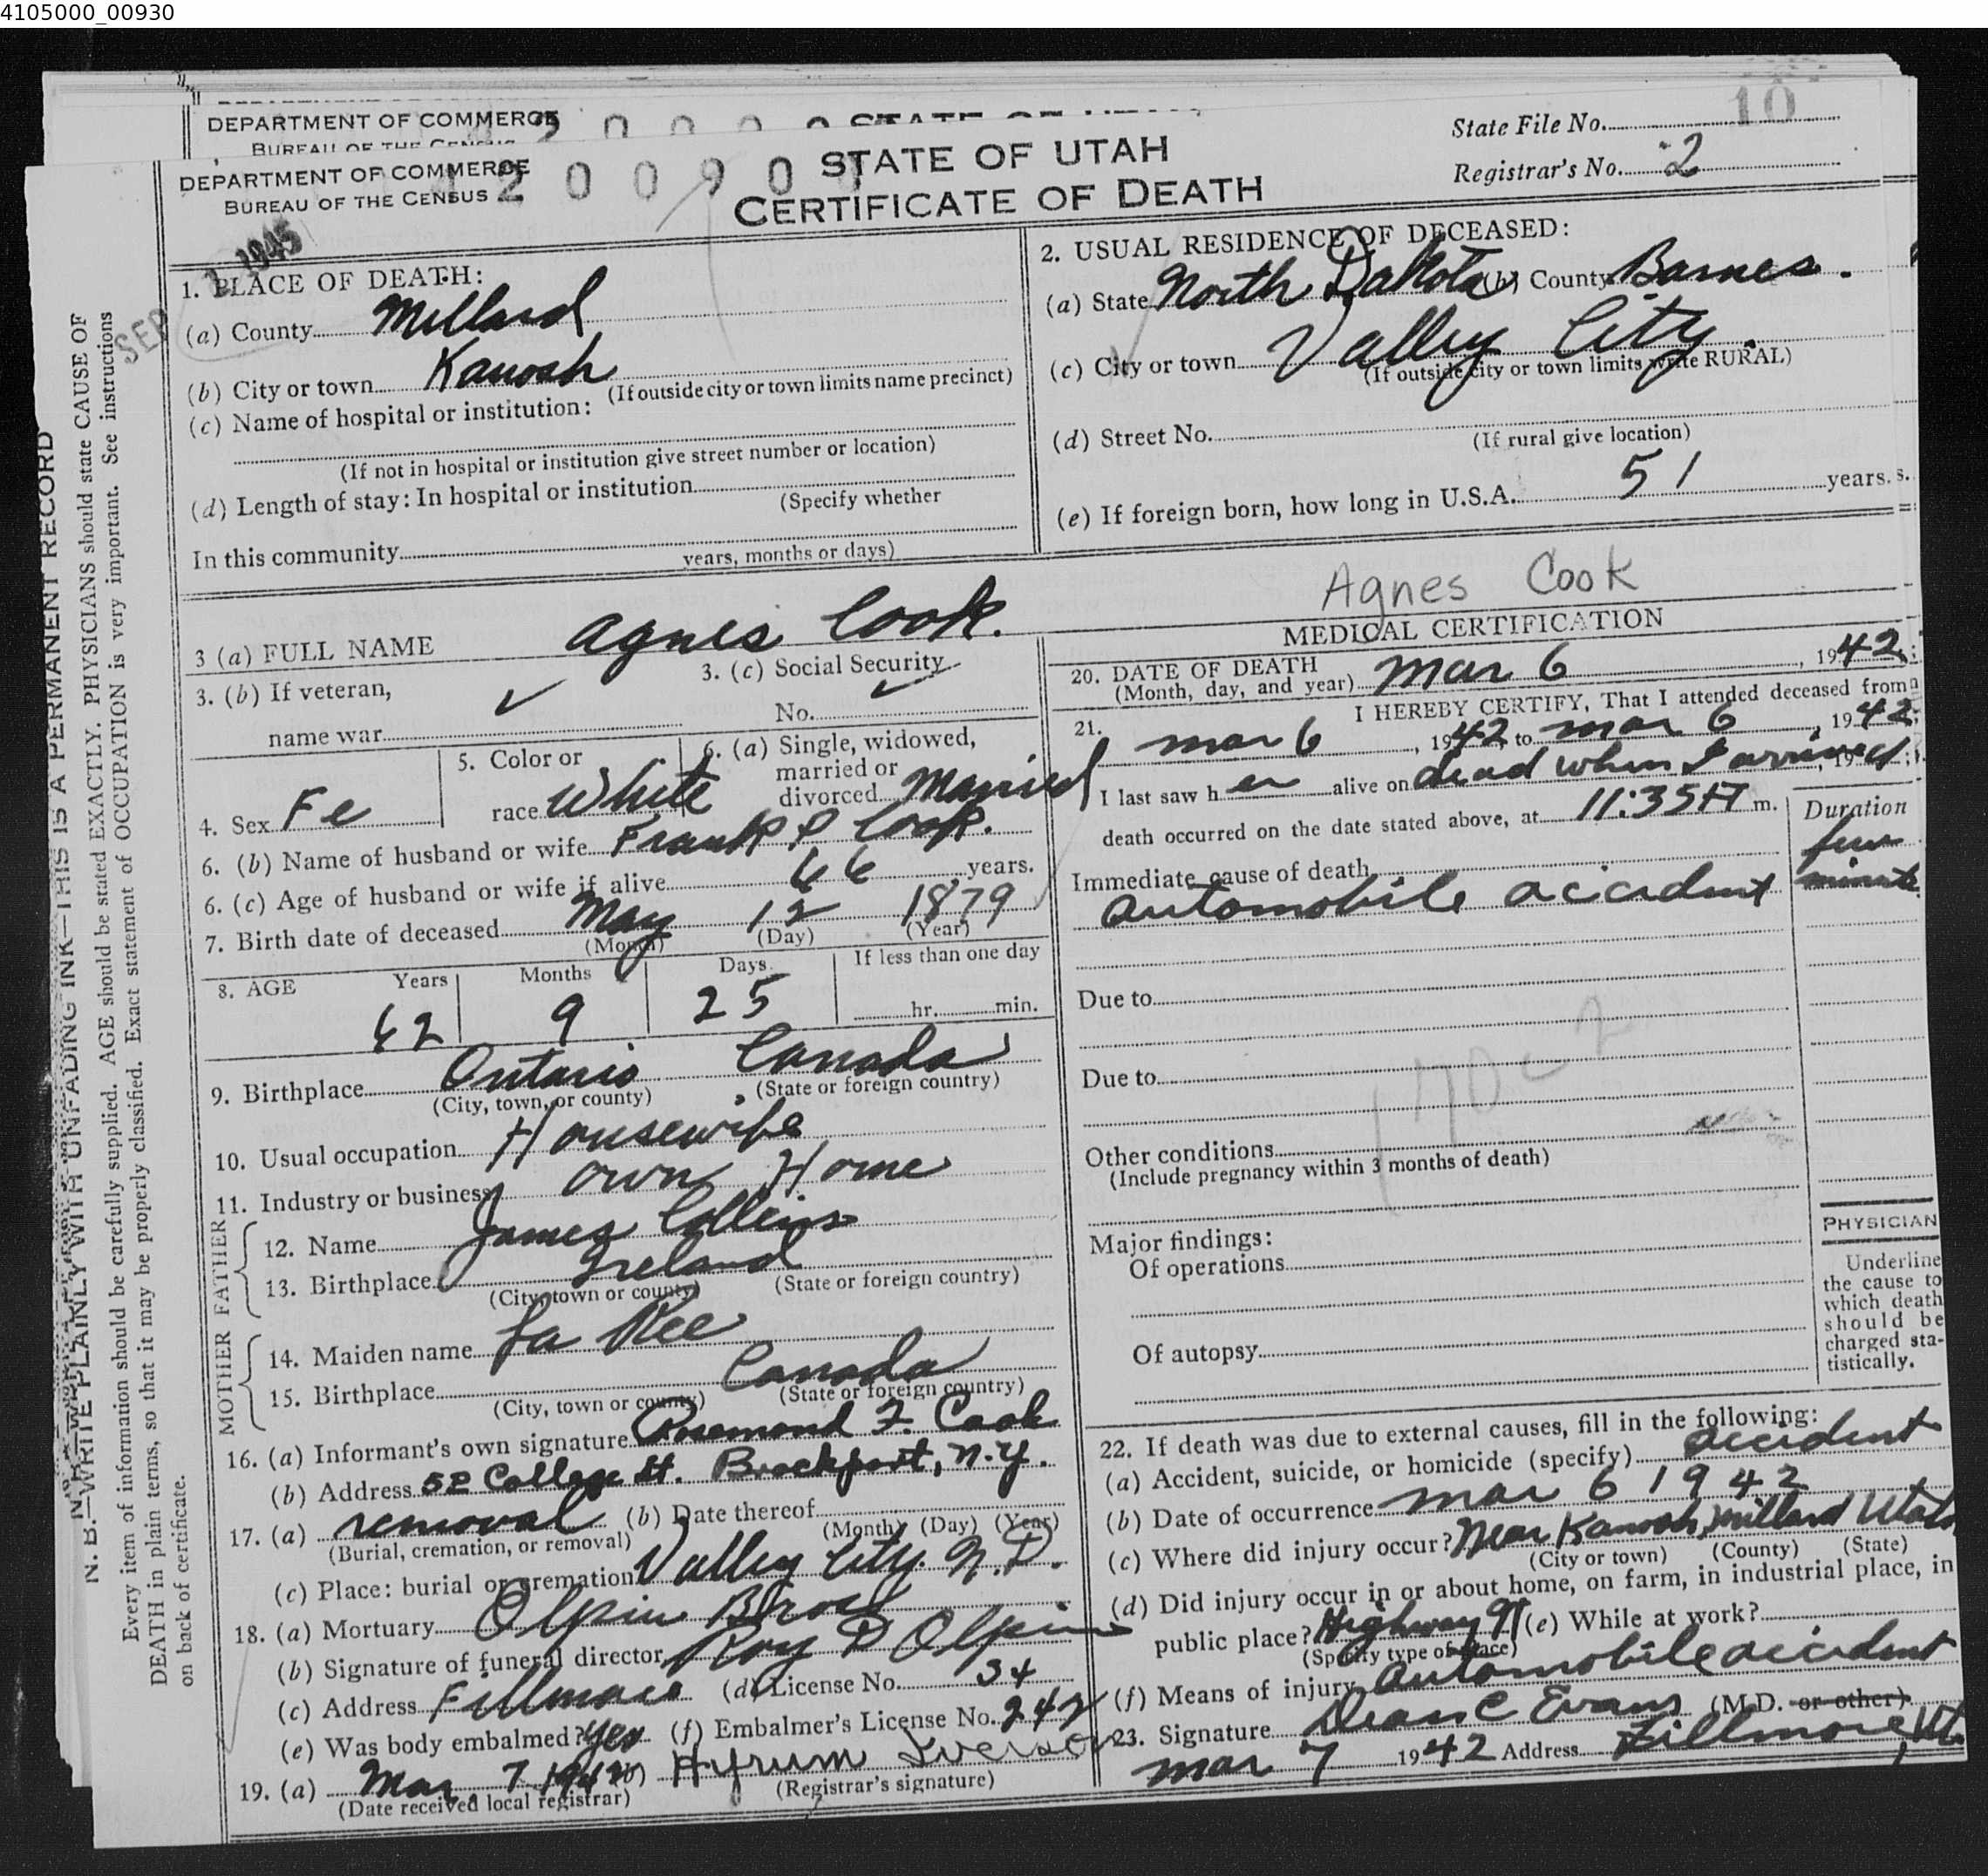 4105000_00930
DEPARTMENT OF COMMERCE
BUREAU OF THE CENSUS
STATE OF UTAH
CERTIFICATE OF DEATH
State File No. 10
Registrar's No. 2
SEP 1945
1. PLACE OF DEATH:
(a) County Millard
(b) City or town Kanosh
(If outside city or town limits name precinct)
(c) Name of hospital or institution:
(If not in hospital or institution give street number or location)
(d) Length of stay: In hospital or institution
(Specify whether
In this community
years, months or days)
2. USUAL RESIDENCE OF DECEASED:
(a) State North Dakota (b) County Barnes.
(c) City or town Valley City.
(If outside city or town limits write RURAL)
(d) Street No.
(If rural give location)
(e) If foreign born, how long in U.S.A. 51 years.
3 (a) FULL NAME Agnes Cook.
3. (b) If veteran, ✓
name war
3. (c) Social Security
No. ✓
4. Sex Fe
5. Color or
race White
6. (a) Single, widowed,
married or
divorced Married
6. (b) Name of husband or wife Frank P Cook.
6. (c) Age of husband or wife if alive 66 years.
7. Birth date of deceased May 12 1879
(Month) (Day) (Year)
8. AGE Years Months Days If less than one day
62 9 25 hr. min.
9. Birthplace Ontario Canada
(City, town, or county) (State or foreign country)
10. Usual occupation Housewife
11. Industry or business own Home
FATHER
12. Name James Collins
13. Birthplace Ireland
(City, town or county) (State or foreign country)
MOTHER
14. Maiden name La Ree
15. Birthplace Canada
(City, town or county) (State or foreign country)
16. (a) Informant's own signature Rosemond F. Cook
(b) Address 52 College St. Brockport, N.Y.
17. (a) removal (b) Date thereof
(Burial, cremation, or removal) (Month) (Day) (Year)
(c) Place: burial or cremation Valley City. N.D.
18. (a) Mortuary Olpin Bros
(b) Signature of funeral director Roy P Olpin
(c) Address Fillmore (d) License No. 34
(e) Was body embalmed? yes (f) Embalmer's License No. 242
19. (a) Mar. 7 1942 (b) Hyrum Iverson
(Date received local registrar) (Registrar's signature)
Agnes Cook
MEDICAL CERTIFICATION
20. DATE OF DEATH
(Month, day, and year) Mar 6, 1942
21. I HEREBY CERTIFY, That I attended deceased from
mar 6, 1942 to mar 6, 1942
I last saw her alive on dead when I arrived, 19
death occurred on the date stated above, at 11:35 m.
Duration
Immediate cause of death few
automobile accident minute
Due to
Due to
Other conditions
(Include pregnancy within 3 months of death)
Major findings:
Of operations
Of autopsy
PHYSICIAN
Underline
the cause to
which death
should be
charged sta-
tistically.
22. If death was due to external causes, fill in the following:
(a) Accident, suicide, or homicide (specify) accident
(b) Date of occurrence mar 6 1942
(c) Where did injury occur? Near Kanosh, Millard Utah
(City or town) (County) (State)
(d) Did injury occur in or about home, on farm, in industrial place, in
public place? Highway 91 (e) While at work?
(Specify type of place)
(f) Means of injury automobile accident
23. Signature Dean C Evans (M.D. or other)
mar 7 1942 Address Fillmore, Ut.
N. B.—WRITE PLAINLY WITH UNFADING INK—THIS IS A PERMANENT RECORD
Every item of information should be carefully supplied. AGE should be stated EXACTLY. PHYSICIANS should state CAUSE OF
DEATH in plain terms, so that it may be properly classified. Exact statement of OCCUPATION is very important. See instructions
on back of certificate.